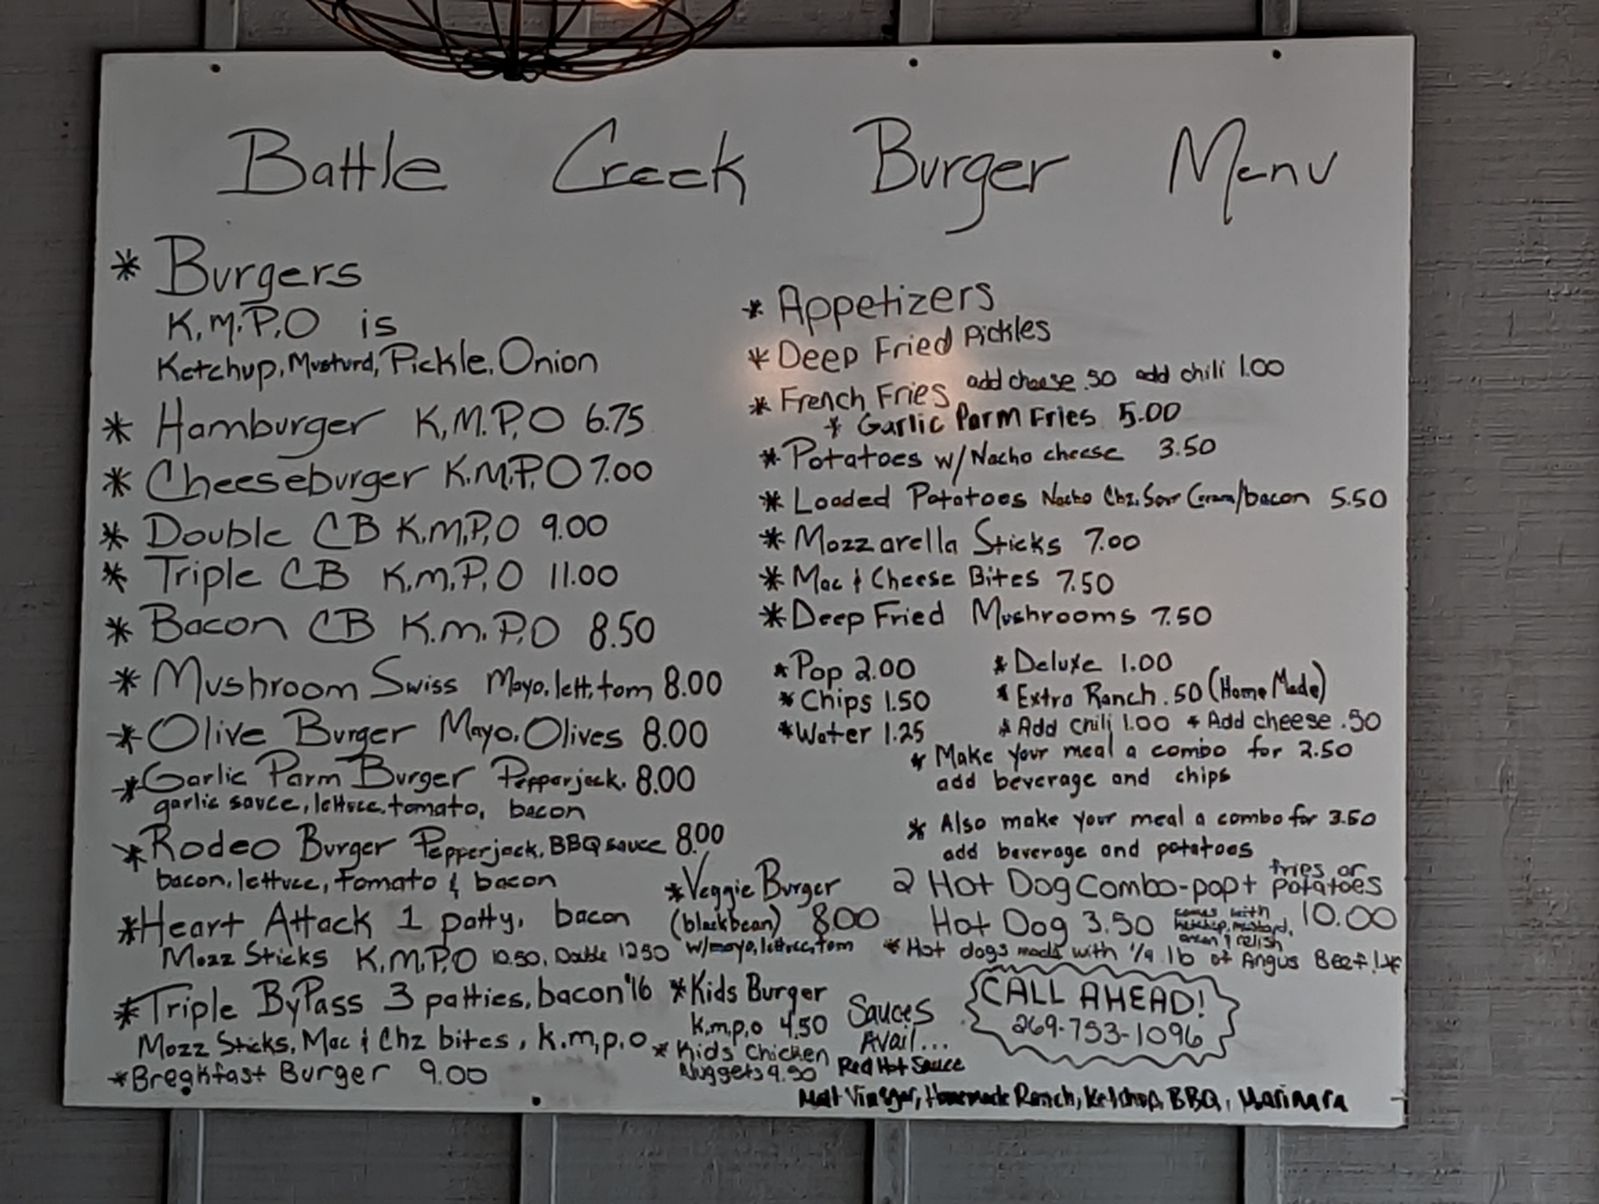 Battle Creek Burger Menu
* Burgers
K.M.P.O is
Ketchup, Musturd, Pickle, Onion
* Hamburger K.M.P.O 6.75
* Cheeseburger K.M.P.O 7.00
* Double CB K.M.P.O 9.00
* Triple CB K.M.P.O 11.00
* Bacon CB K.M.P.O 8.50
* Mushroom Swiss Mayo, lett, tom 8.00
* Olive Burger Mayo, Olives 8.00
* Garlic Parm Burger Pepperjack, 8.00
garlic sauce, lettuce, tomato, bacon
* Rodeo Burger Pepperjack, BBQ sauce 8.00
bacon, lettuce, Tomato & bacon
* Heart Attack 1 patty, bacon
Mozz Sticks K.M.P.O 10.50, Double 12.50
* Triple ByPass 3 patties, bacon $16
Mozz Sticks, Mac & Chz bites, k.m.p.o
* Breakfast Burger 9.00
* Veggie Burger
(blackbean) 8.00
w/mayo, lettuce, tom
* Kids Burger
K.m.p.o 4.50
* Kids Chicken
Nuggets 4.50
* Appetizers
* Deep Fried Pickles
* French Fries add cheese .50 add chili 1.00
* Garlic Parm Fries 5.00
* Potatoes w/ Nacho cheese 3.50
* Loaded Potatoes Nacho Chz, Sour Cream/bacon 5.50
* Mozzarella Sticks 7.00
* Mac & Cheese Bites 7.50
* Deep Fried Mushrooms 7.50
* Pop 2.00
* Chips 1.50
* Water 1.25
* Deluxe 1.00
* Extra Ranch .50 (Home Made)
* Add chili 1.00 * Add cheese .50
* Make your meal a combo for 2.50
add beverage and chips
* Also make your meal a combo for 3.50
add beverage and potatoes
2 Hot Dog Combo-pop + fries or potatoes
Hot Dog 3.50 comes with ketchup, mustard, onion & relish 10.00
* Hot dogs made with 1/4 lb of Angus Beef!
CALL AHEAD!
269-753-1096
Sauces
Avail...
Red Hot Sauce
Malt Vinegar, Homemade Ranch, Ketchup, BBQ, Marinara